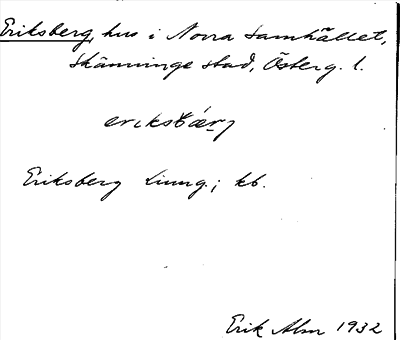 Eriksberg, hus i Norra Samhället,
Skänninge stad, Österg. l.
eriksbärj
Eriksberg Ljung.; kb.
Erik Alm 1932